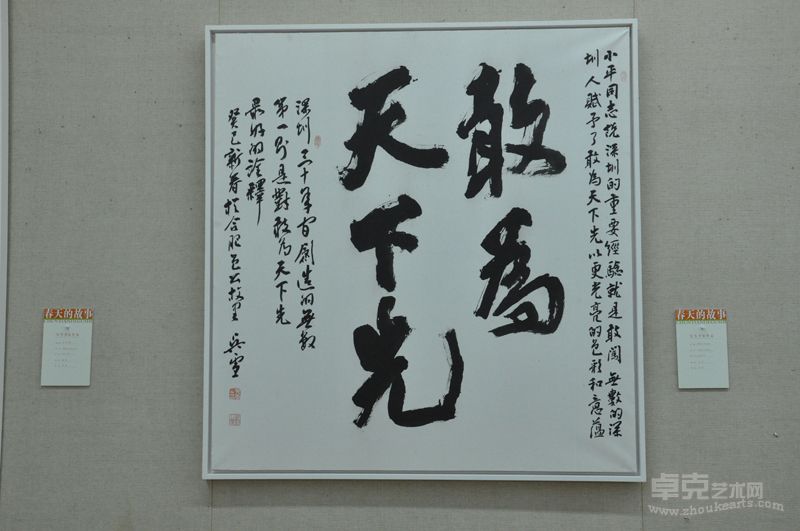 小平同志说深圳的重要經驗就是敢闖 無數的深
圳人赋予了敢為天下先以更光亮的色彩和意蕴
敢為
天下先
深圳三十年间創造的無數
第一则是對敢為天下先
最好的诠釋
癸巳新春於合肥包公故里 吴雪
春天的故事
春天的故事
卓克艺术网
www.zhoukearts.com